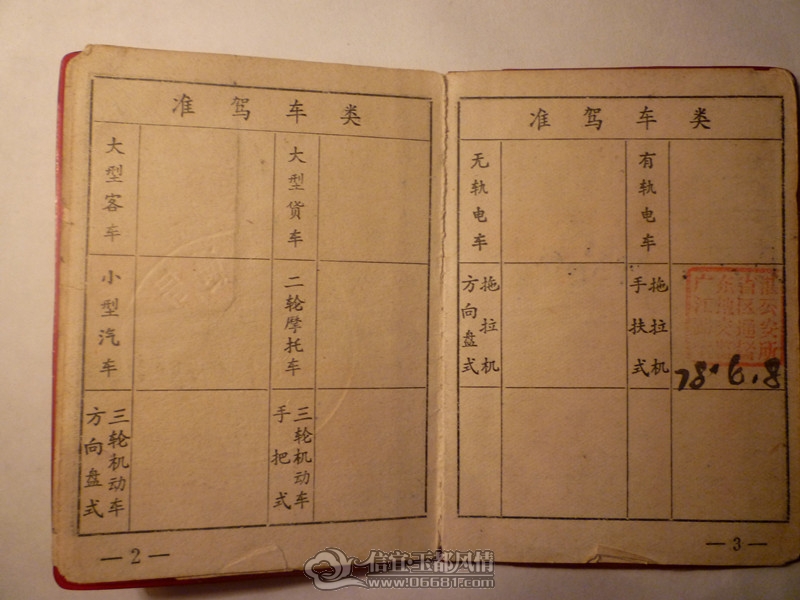 准驾车类
大型客车
大型货车
小型汽车
二轮摩托车
方向盘式
三轮机动车
手把式
三轮机动车
—2—
准驾车类
无轨电车
有轨电车
方向盘式
拖拉机
手扶式
拖拉机
78.6.8
—3—
信宜玉都风情
www.06681.com